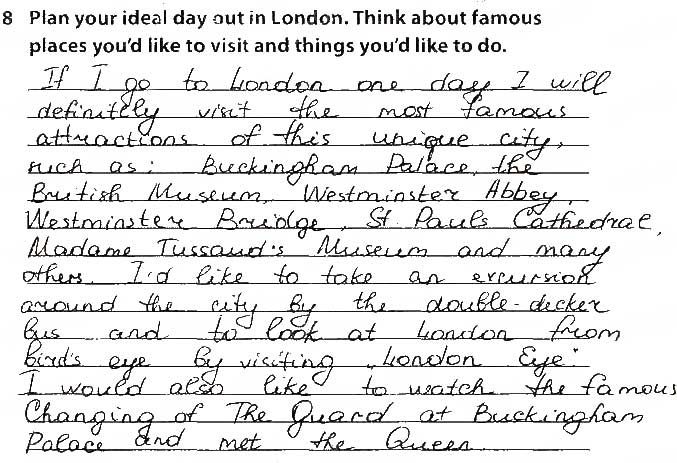 8 Plan your ideal day out in London. Think about famous
places you'd like to visit and things you'd like to do.
If I go to London one day I will
definitely visit the most famous
attractions of this unique city,
such as: Buckingham Palace, the
British Museum, Westminster Abbey,
Westminster Bridge, St. Pauls Cathedral,
Madame Tussaud's Museum and many
others. I'd like to take an excursion
around the city by the double-decker
bus and to look at London from
bird's eye by visiting "London Eye".
I would also like to watch the famous
Changing of The Guard at Buckingham
Palace and met the Queen.